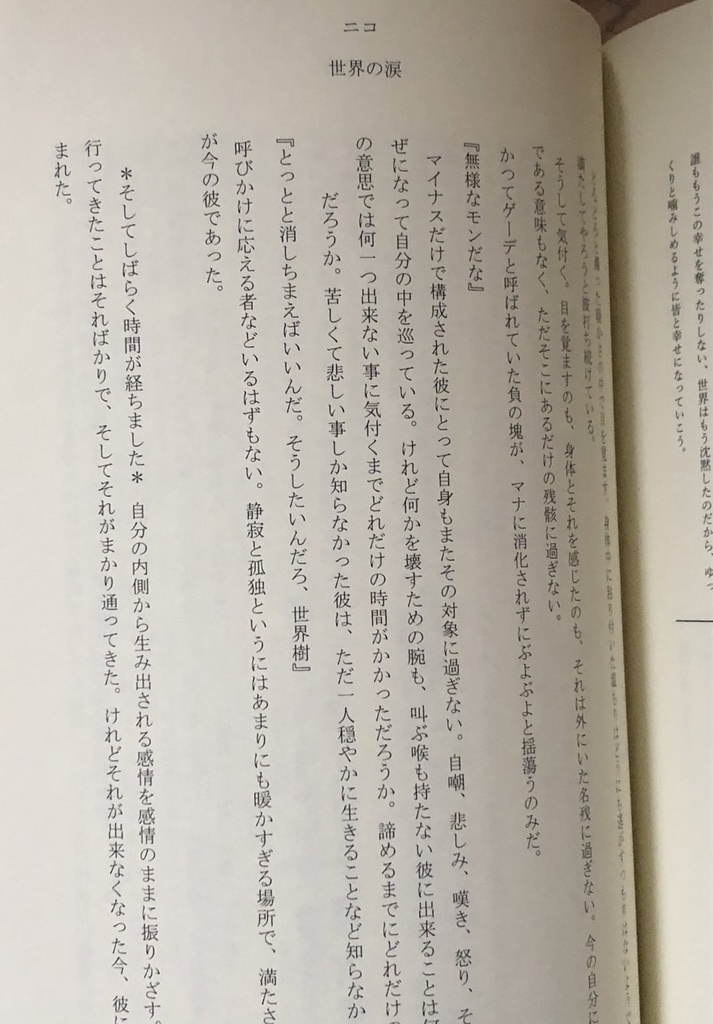 誰ももうこの幸せを奪ったりしない、世界はもう沈黙したのだから、ゆっ
くりと噛みしめるように皆と幸せになっていこう。
ニコ
世界の涙
満たしてやろうと波打ち続けている。
そうして気付く。目を覚ますのも、身体とそれを感じたのも、それは外にいた名残に過ぎない。今の自分に
である意味もなく、ただそこにあるだけの残骸に過ぎない。
かつてゲーデと呼ばれていた負の塊が、マナに消化されずにぶよぶよと揺蕩うのみだ。
『無様なモンだな』
マイナスだけで構成された彼にとって自身もまたその対象に過ぎない。自嘲、悲しみ、嘆き、怒り、そ
ぜになって自分の中を巡っている。けれど何かを壊すための腕も、叫ぶ喉も持たない彼に出来ることは何
の意思では何一つ出来ない事に気付くまでどれだけの時間がかかっただろうか。諦めるまでにどれだけの
だろうか。苦しくて悲しい事しか知らなかった彼は、ただ一人穏やかに生きることなど知らなか
『とっとと消しちまえばいいんだ。そうしたいんだろ、世界樹』
呼びかけに応える者などいるはずもない。静寂と孤独というにはあまりにも暖かすぎる場所で、満たさ
が今の彼であった。
＊そしてしばらく時間が経ちました＊　自分の内側から生み出される感情を感情のままに振りかざす。
行ってきたことはそればかりで、そしてそれがまかり通ってきた。けれどそれが出来なくなった今、彼に
まれた。